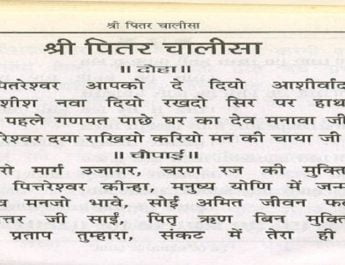 श्री पितर चालीसा
श्री पितर चालीसा
॥ दोहा ॥
पितरेश्वर आपको दे दियो आशीर्वाद
शीश नवा दियो रखदो सिर पर हाथ
पहले गणपत पाछे घर का देव मनावा जी
रेश्वर दया राखियो करियो मन की चाया जी
॥ चौपाई ॥
रो मार्ग उजागर, चरण रज की मुक्ति
पित्तरेश्वर कीन्हा, मनुष्य योणि में जन्म
व मनजो भावे, सोई अमित जीवन फल
त्तर जी साईं, पितृ ऋण बिन मुक्ति
प्रताप तुम्हारा, संकट में तेरा ही